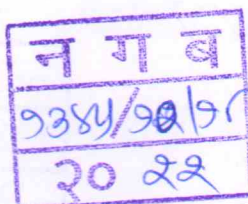 न ग ब
१३४५/१२/१८
२० २२